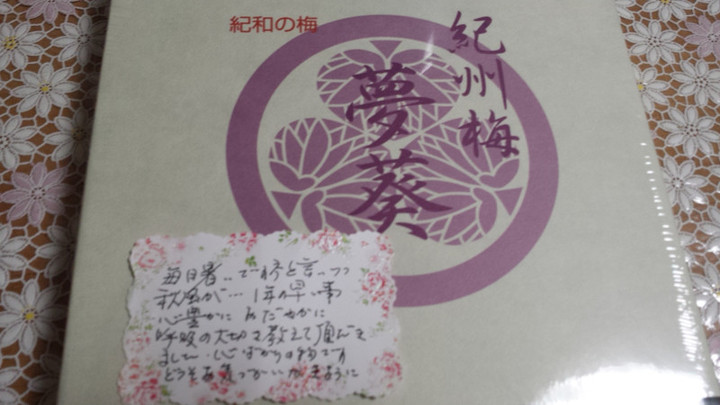 紀和の梅
紀州梅
夢葵
毎日暑いですねと言いつつ
秋風が… 1年の早い事
心豊かに おだやかに
呼吸の大切さ教えて頂きま
ました。心ばかりの物です
どうぞお気づかいが きように